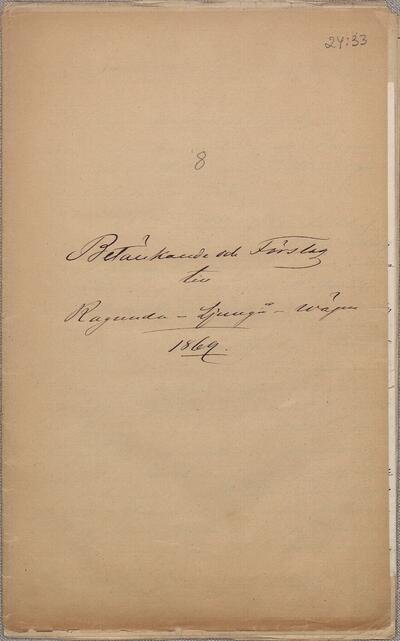 24:33
8
Betänkande och Förslag
till
Ragunda - Ljungå - vägen
1869.